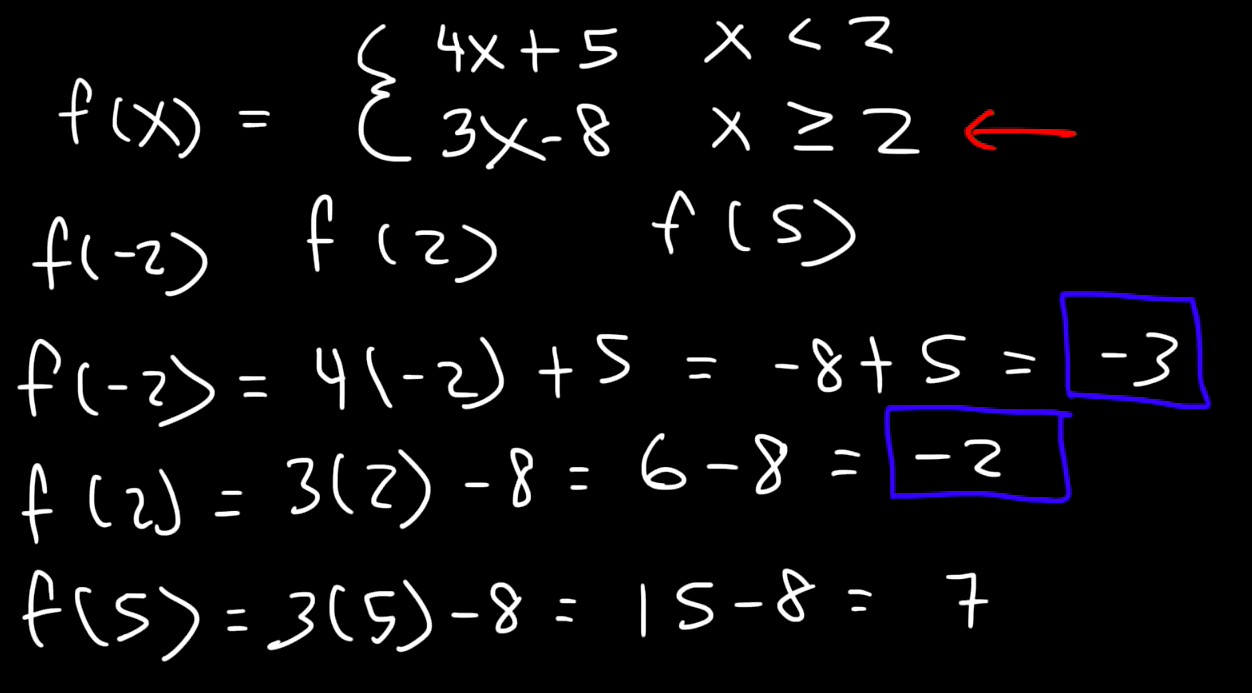 f(x) = { 4x + 5 x < 2
3x - 8 x ≥ 2 ←
f(-2) f(2) f(5)
f(-2) = 4(-2) + 5 = -8 + 5 = -3
f(2) = 3(2) - 8 = 6 - 8 = -2
f(5) = 3(5) - 8 = 15 - 8 = 7